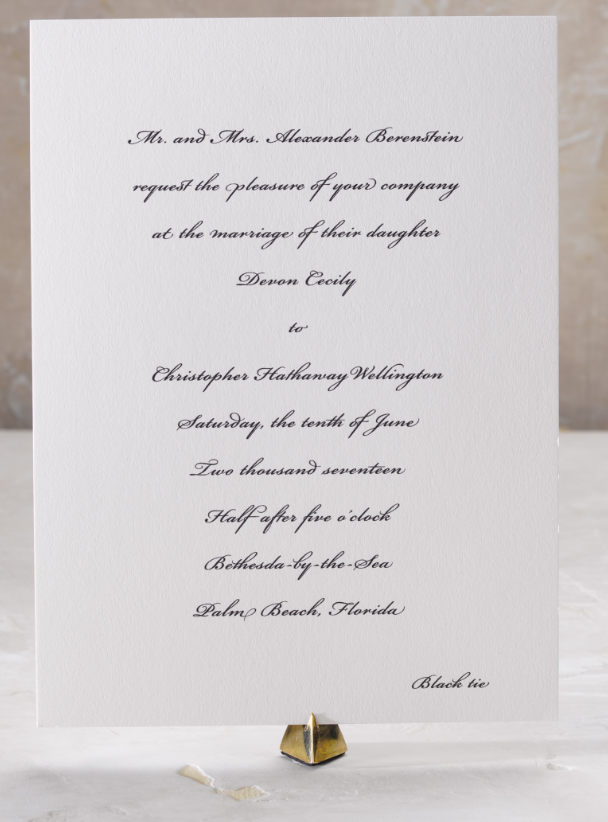 Mr. and Mrs. Alexander Berenstein
request the pleasure of your company
at the marriage of their daughter
Devon Cecily
to
Christopher Hathaway Wellington
Saturday, the tenth of June
Two thousand seventeen
Half after five o'clock
Bethesda-by-the-Sea
Palm Beach, Florida
Black tie